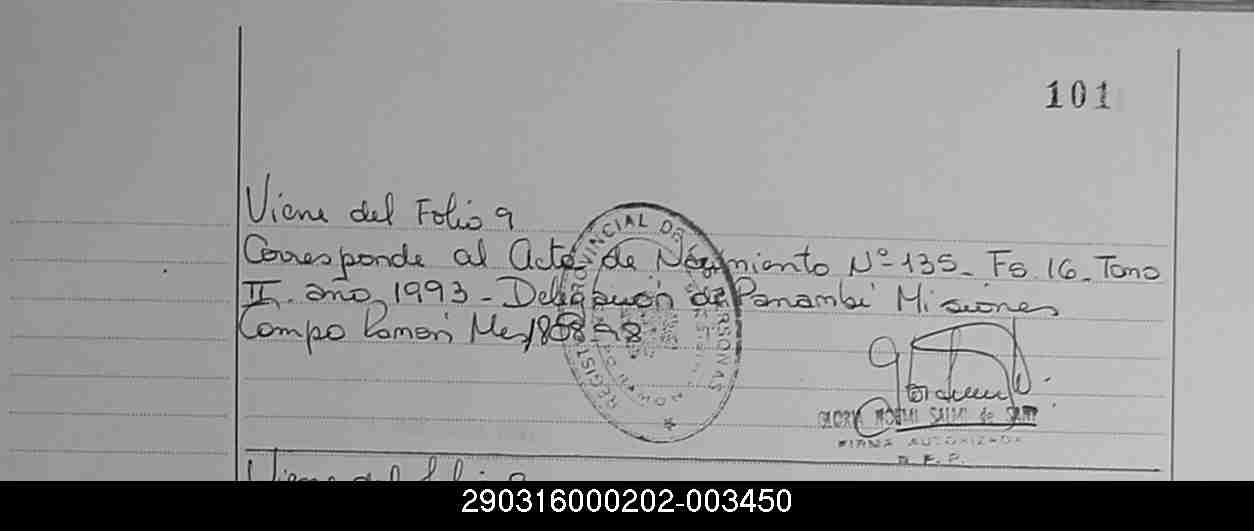 101
Viene del Folio 9
Corresponde al Acta de Nacimiento Nº 135_ Fo 16_ Tomo
II. año 1993 - Delegación de Panambí Misiones
Campo Ramón Mes/
REGISTRO PROVINCIAL DE PERSONAS
GLORIA NOEMI de
FIRMA AUTORIZADA
R. P. P.
Viene del Folio 9
290316000202-003450